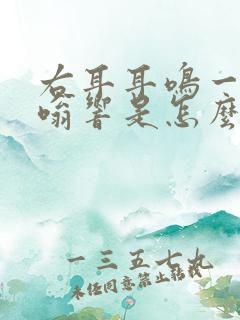 右耳耳鳴一
嗡響是怎麼
一三五七九
未经同意禁止转载